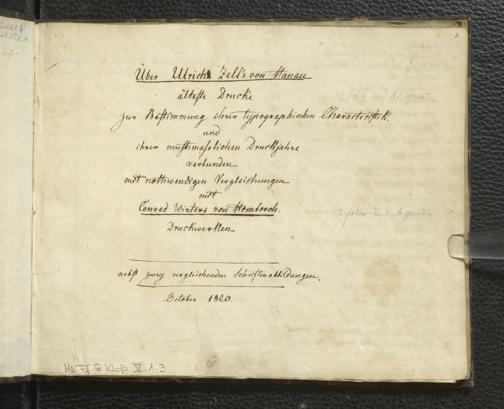 Über Ulrich Zell's von Hanau
älteste Drucke
zur Bestimmung ihrer typographischen Characteristik
und
ihrer muthmaßlichen Druckjahre
verbunden
mit nothwendigen Vergleichungen
mit
Conrad Winters von Homborch
Druckwerken.
nebst zwey vergleichenden Schriftenabbildungen.
October 1820.
Ms Ff G Kloß V. 1. 3